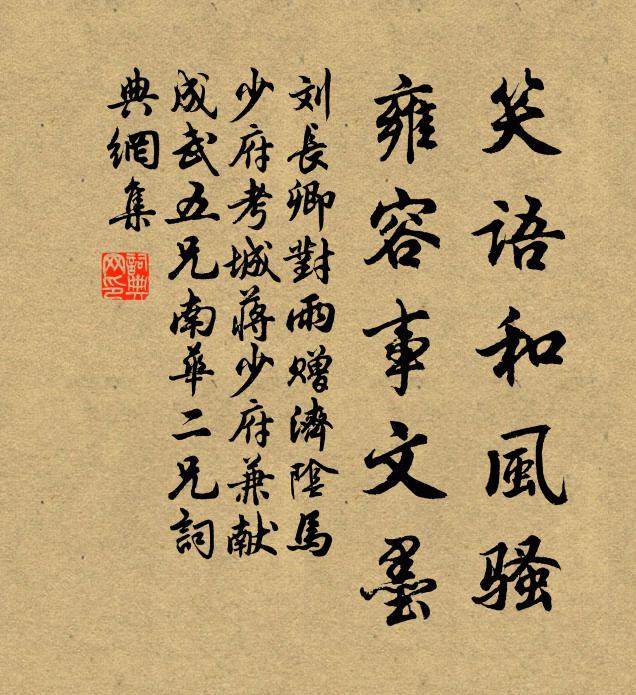 笑語和風骚
雍容事文墨
刘長卿對雨赠濟陰馬
少府考城蒋少府兼献
成武五兄南華二兄詞
典網集
詞典
网印